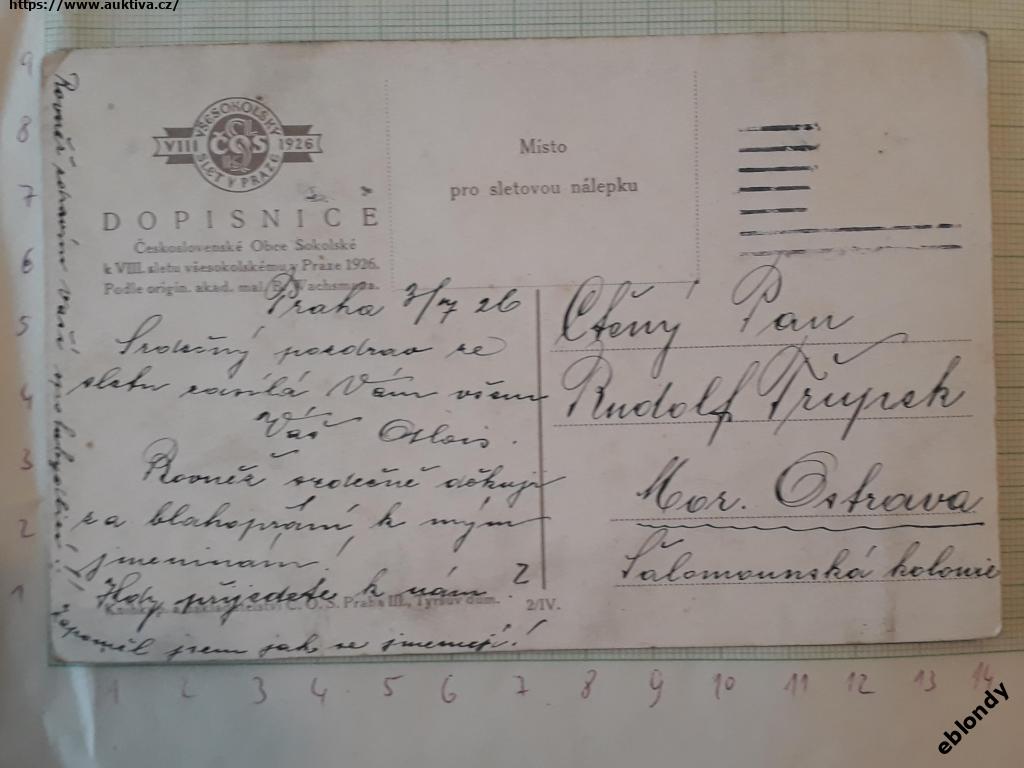 https://www.auktiva.cz/
VŠESOKOLSKÝ
VIII ČOS 1926
SLET V PRAZE
DOPISNICE
Československé Obce Sokolské
k VIII. sletu všesokolskému v Praze 1926.
Podle origin. akad. mal. B. Wachsmana.
Místo
pro sletovou nálepku
Praha 3/VII 26
Srdečný pozdrav ze
sletu zasílá Vám všem
Váš Alois.
Rovněž srdečně děkuji
za blahopřání k mým
jmeninám!
Kdy přijedete k nám?
Ctěný Pan
Rudolf Třúpek
Mor. Ostrava
Šalomounská kolonie
a nakladatelství Č. O. S. Praha III., Tyršův dům.
2/IV.
Rovněž zdraví Vaše
zapoměl jsem jak se jmenují!
9
8
7
6
5
4
3
2
1
1 2 3 4 5 6 7 8 9 10 11 12 13 14
eblondy